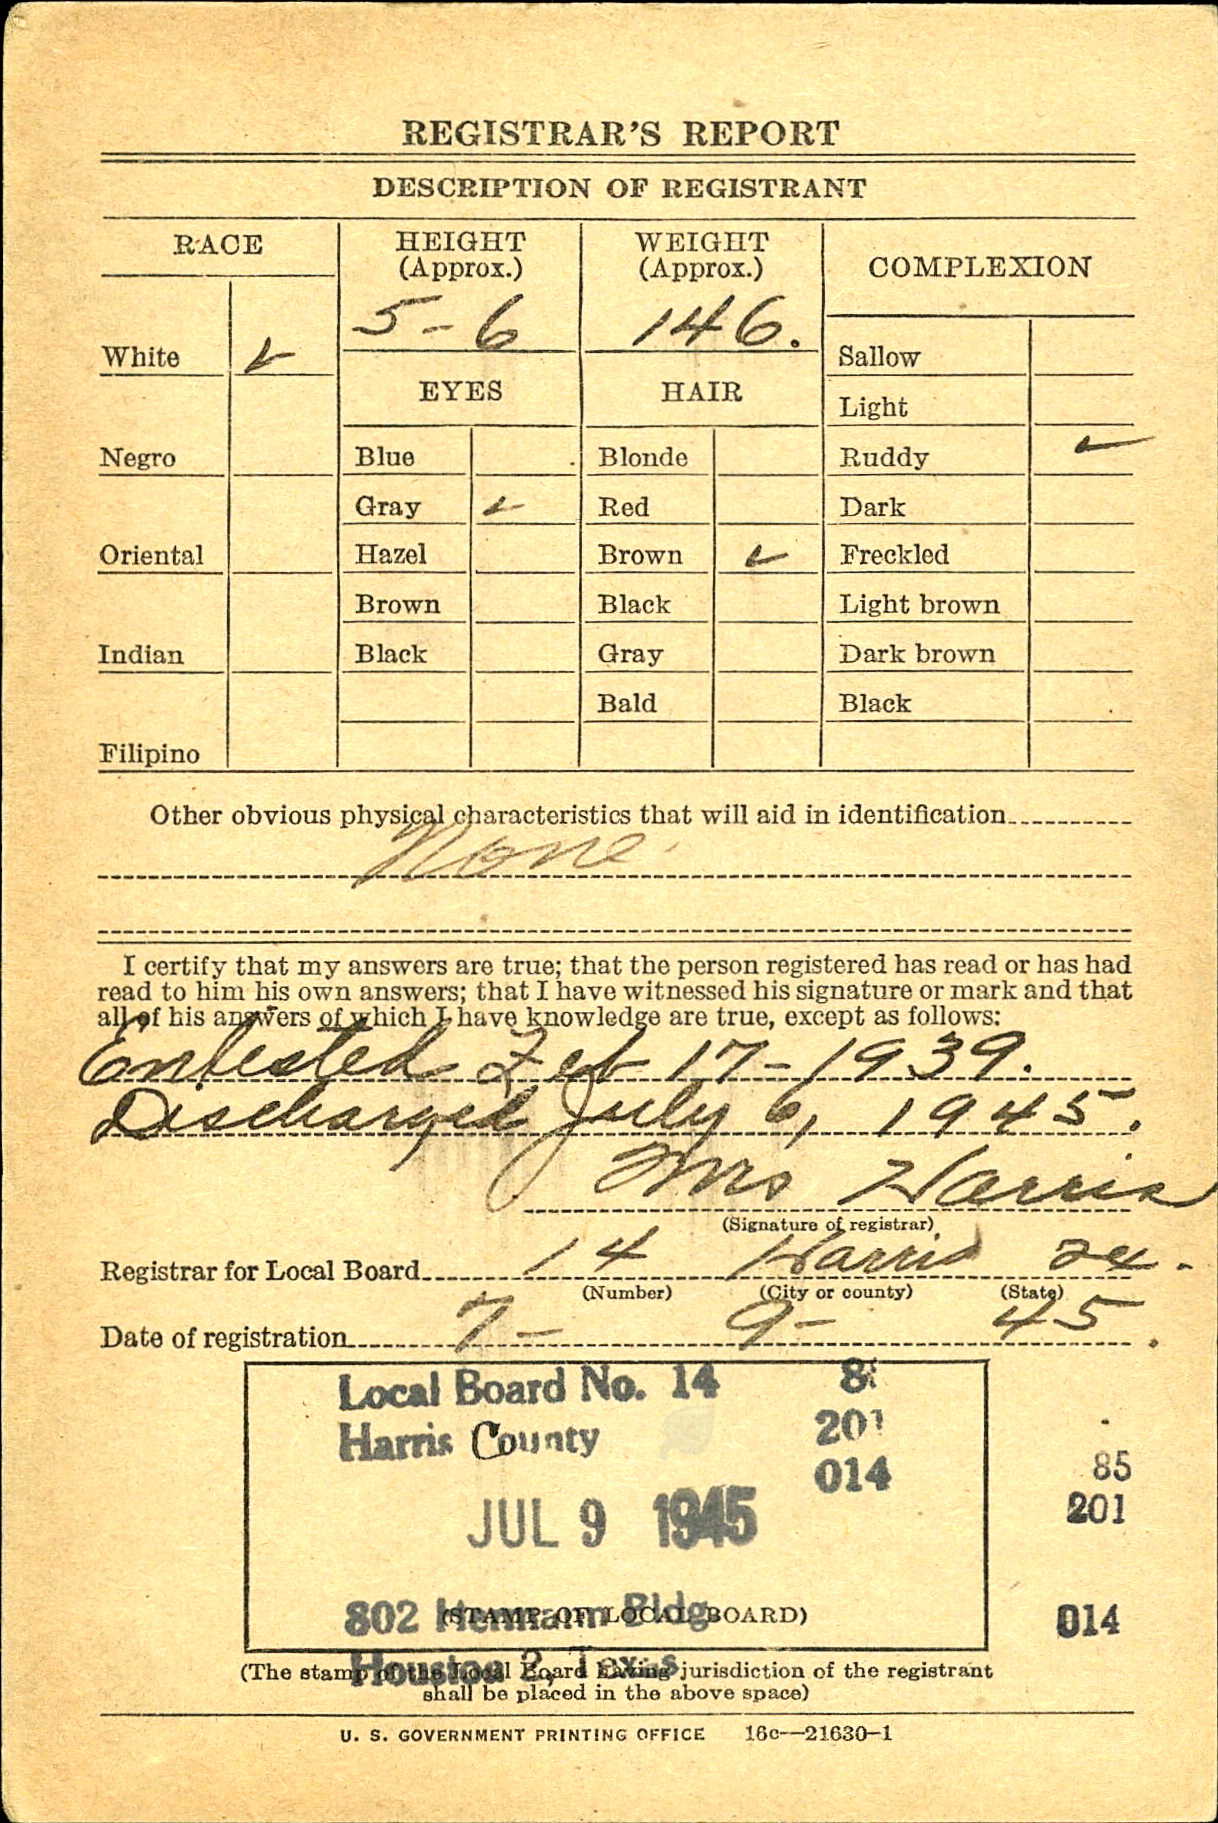 REGISTRAR'S REPORT
DESCRIPTION OF REGISTRANT
RACE
HEIGHT
(Approx.)
WEIGHT
(Approx.)
COMPLEXION
5-6
146.
White ✓
Sallow
EYES
HAIR
Light
Negro
Blue
Blonde
Ruddy ✓
Gray ✓
Red
Dark
Oriental
Hazel
Brown ✓
Freckled
Brown
Black
Light brown
Indian
Black
Gray
Dark brown
Bald
Black
Filipino
Other obvious physical characteristics that will aid in identification
None
I certify that my answers are true; that the person registered has read or has had
read to him his own answers; that I have witnessed his signature or mark and that
all of his answers of which I have knowledge are true, except as follows:
Enlisted Feb 17-1939.
Discharged July 6, 1945.
Mrs Harris
(Signature of registrar)
Registrar for Local Board 14 Harris
(Number) (City or county) (State)
Date of registration 7- 9- 45.
Local Board No. 14
Harris County
201
014
JUL 9 1945
85
201
014
802 Hermann Bldg.
(STAMP OF LOCAL BOARD)
Houston 2, Texas
(The stamp of the Local Board having jurisdiction of the registrant
shall be placed in the above space)
U. S. GOVERNMENT PRINTING OFFICE 16c—21630-1